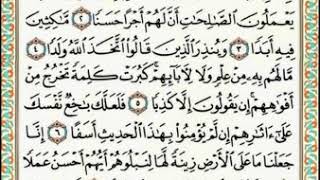 يَعْمَلُونَ ٱلصَّـٰلِحَـٰتِ أَنَّ لَهُمْ أَجْرًا حَسَنًا ٢ مَّـٰكِثِينَ
فِيهِ أَبَدًا ٣ وَيُنذِرَ ٱلَّذِينَ قَالُوا۟ ٱتَّخَذَ ٱللَّهُ وَلَدًا ٤
مَّا لَهُم بِهِۦ مِنْ عِلْمٍ وَلَا لِـَٔابَآئِهِمْ كَبُرَتْ كَلِمَةً تَخْرُجُ مِنْ
أَفْوَٰهِهِمْ إِن يَقُولُونَ إِلَّا كَذِبًا ٥ فَلَعَلَّكَ بَـٰخِعٌ نَّفْسَكَ
عَلَىٰٓ ءَاثَـٰرِهِمْ إِن لَّمْ يُؤْمِنُوا۟ بِهَـٰذَا ٱلْحَدِيثِ أَسَفًا ٦ إِنَّا
جَعَلْنَا مَا عَلَى ٱلْأَرْضِ زِينَةً لَّهَا لِنَبْلُوَهُمْ أَيُّهُمْ أَحْسَنُ عَمَلًا